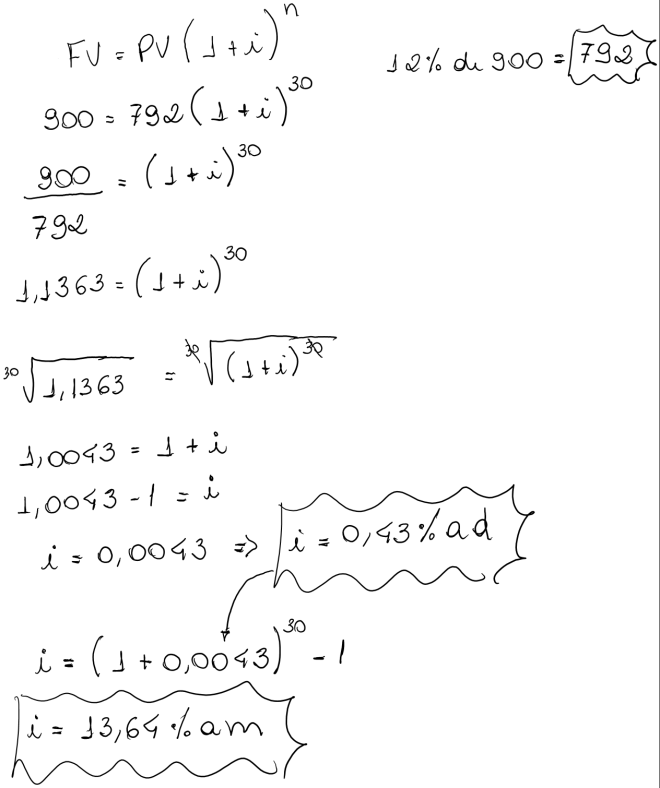 FV = PV(1+i)^n
12% de 900 = 792
900 = 792(1+i)^30
900/792 = (1+i)^30
1,1363 = (1+i)^30
³⁰√1,1363 = ³⁰√(1+i)^30
1,0043 = 1+i
1,0043 - 1 = i
i = 0,0043 => i = 0,43% ad
i = (1+0,0043)^30 - 1
i = 13,64% am